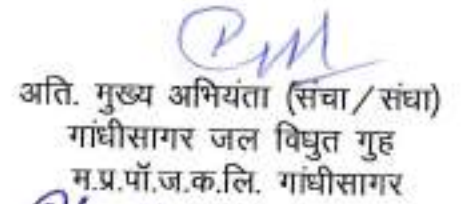 अति. मुख्य अभियंता (संचा/संधा)
गांधीसागर जल विघुत गुह
म.प्र.पॉ.ज.क.लि. गांधीसागर